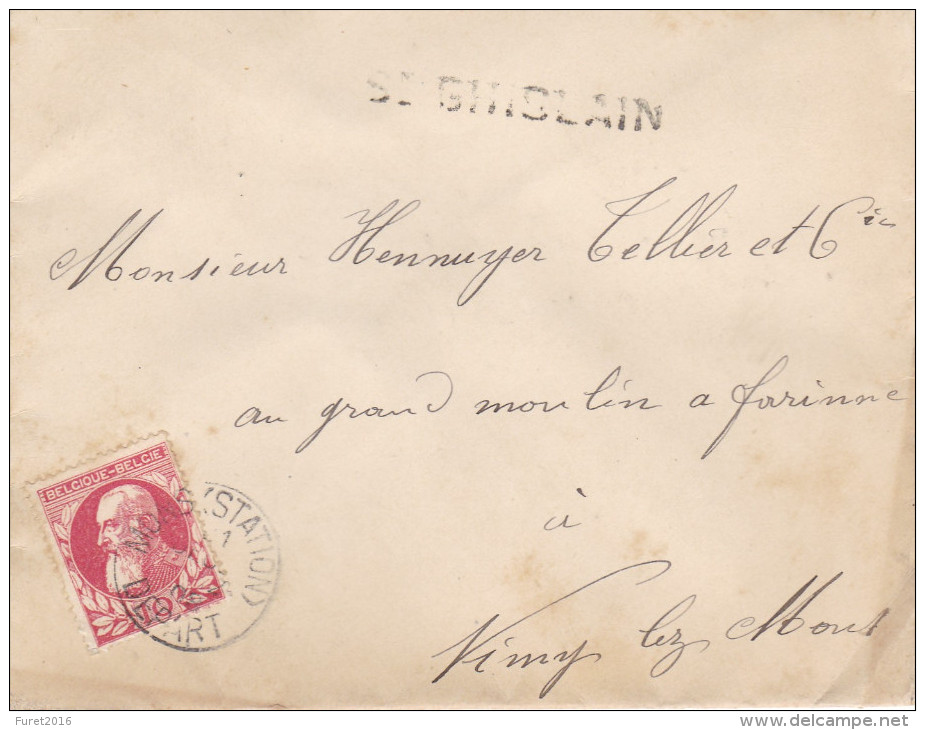 St GHISLAIN
Monsieur Hennuyer Tellier et Cie
au grand moulin a farinne
à
Nimy lez Mons
BELGIQUE-BELGIE
10
MONS (STATION)
DEPART
Furet2016
www.delcampe.net